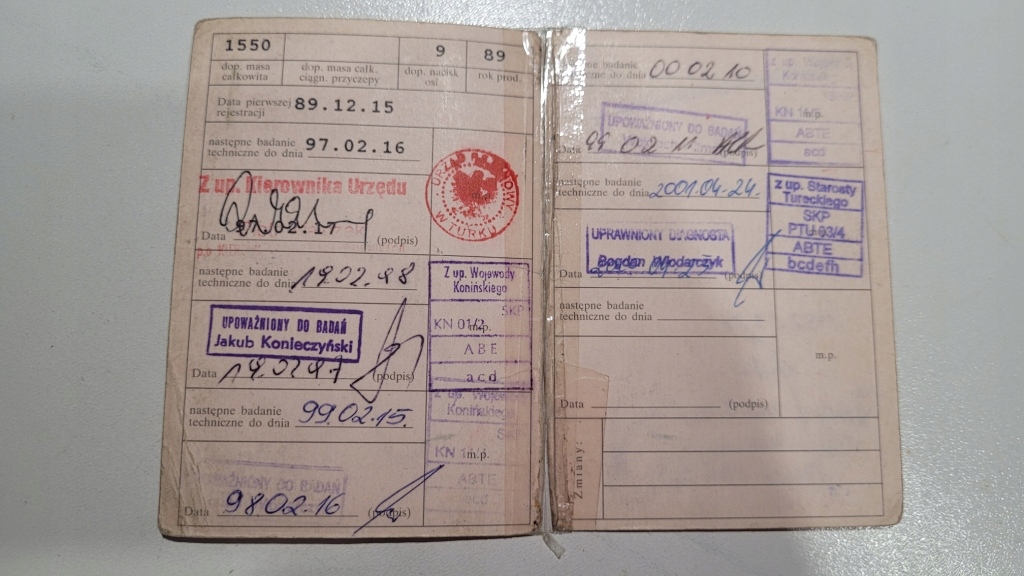 1550 9 89
dop. masa całkowita dop. masa całk. ciągn. przyczepy dop. nacisk osi rok prod.
Data pierwszej rejestracji 89.12.15
następne badanie techniczne do dnia 97.02.16
Z up. Kierownika Urzędu
URZĄD REJONOWY W TURKU
Data (podpis)
następne badanie techniczne do dnia 19.02.98
Z up. Wojewody
Konińskiego
SKP
KN 01/2 m.p.
ABE
acd
UPOWAŻNIONY DO BADAŃ
Jakub Konieczyński
Data 19.02.97 (podpis)
następne badanie techniczne do dnia 99.02.15.
Z up.
Konińskiego
KN m.p.
ABTE
UPOWAŻNIONY DO BADAŃ
Data 98.02.16 (podpis)
badanie techniczne do dnia 00 02 10
KN m.p.
ABTE
acd
UPOWAŻNIONY DO BADAŃ
Data 99 02 11 (podpis)
następne badanie techniczne do dnia 2001.04-24.
z up. Starosty
Tureckiego
SKP
PTU 03/4
ABTE
bcdefh
UPRAWNIONY DIAGNOSTA
Bogdan Włodarczyk
Data (podpis)
następne badanie
techniczne do dnia
m.p.
Data (podpis)
Zmiany: